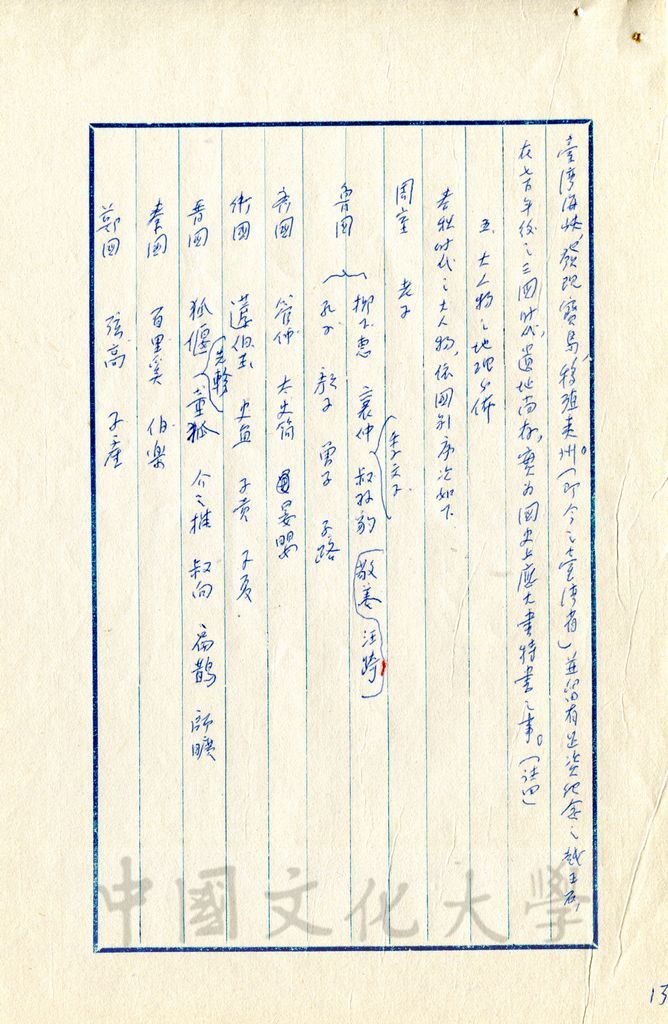 臺灣海峽，發現寶島，移殖夷州（即今之臺灣省）並留有足資紀念之越王石，
在七百年後之三國时代，遺址尚存，實为國史上應大書特書之事。（註四）
五、大人物之地理分佈
春秋时代之大人物，依國別序次如下
周室 老子
魯国 柳下惠 襄仲 季文子 叔孙豹（敬姜 汪踦）
孔子 顏子 曾子 子路
齐國 管仲 太史簡 晏嬰
衛國 蘧伯玉 史魚 子贡 子夏
晋国 狐偃 先軫 董狐 介之推 叔向 扁鵲 師曠
秦国 百里奚 伯樂
鄭国 弦高 子產
中國文化大學
13